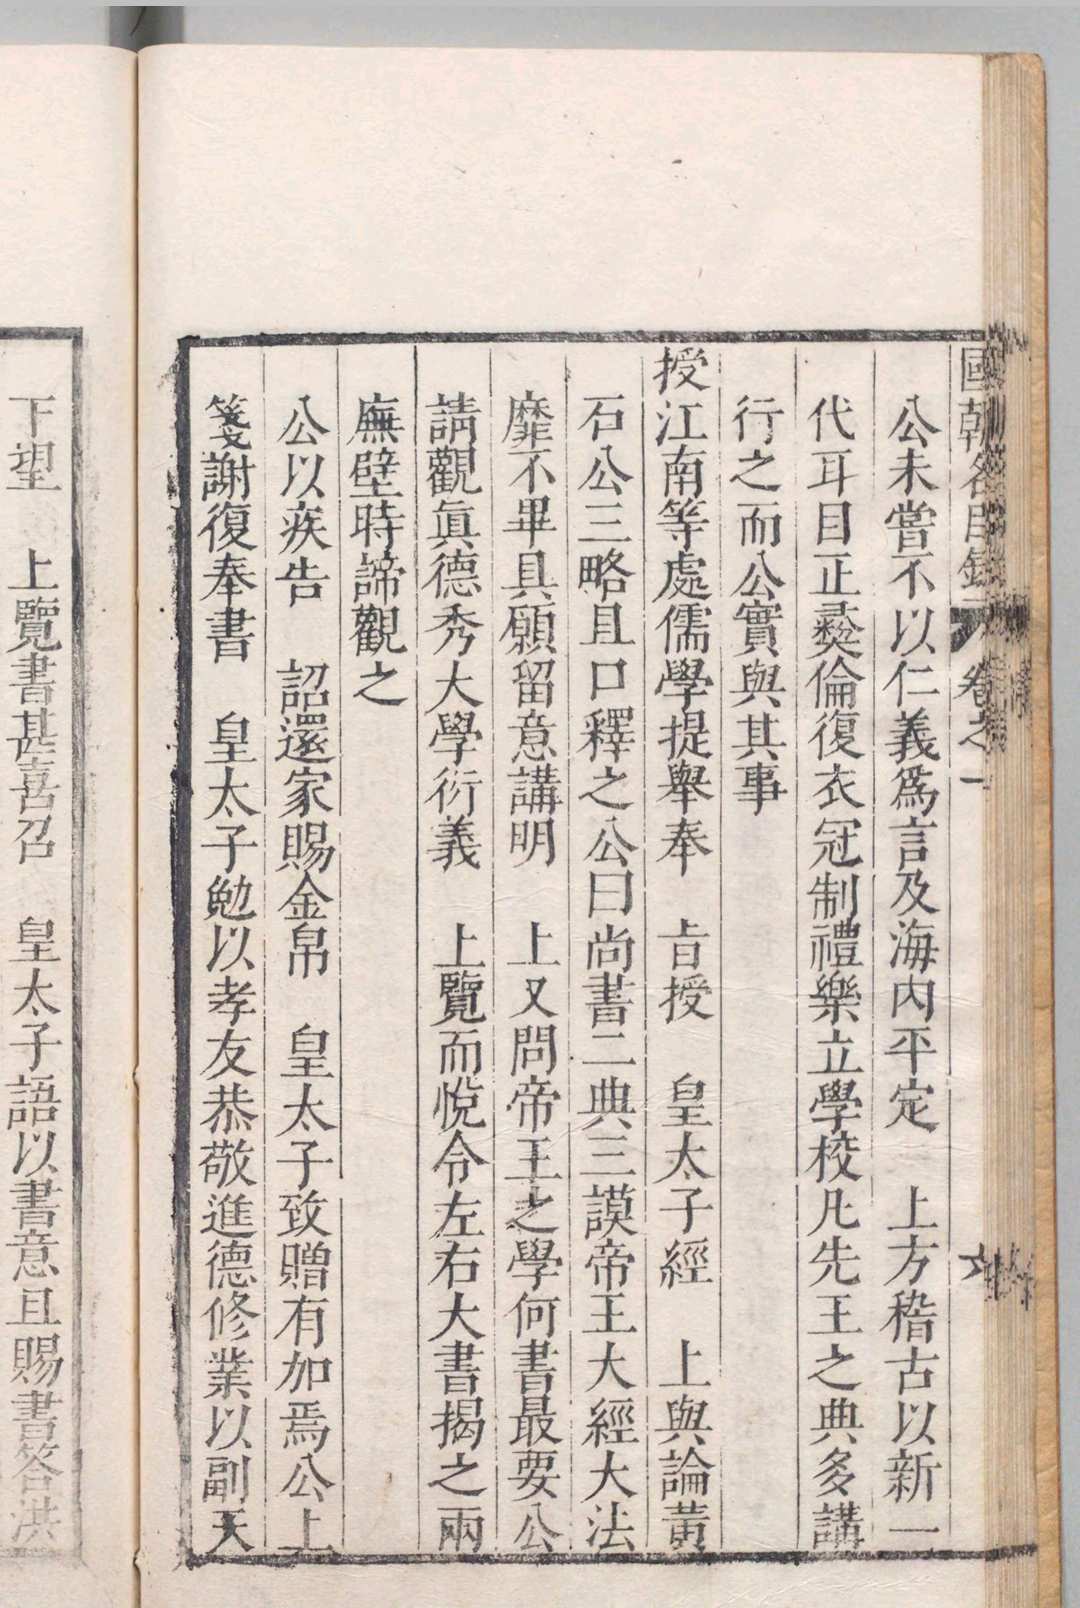 國朝名臣錄 卷之一
公未嘗不以仁義爲言及海內平定 上方稽古以新一
代耳目正彝倫復衣冠制禮樂立學校凡先王之典多講
行之而公實與其事
授江南等處儒學提舉奉 旨授 皇太子經 上與論黃
石公三略且口釋之公曰尚書二典三謨帝王大經大法
靡不畢具願留意講明 上又問帝王之學何書最要公
請觀眞德秀大學衍義 上覽而悅令左右大書揭之兩
廡壁時諦觀之
公以疾告 詔還家賜金帛 皇太子致贈有加焉公上
箋謝復奉書 皇太子勉以孝友恭敬進德修業以副天
下望 上覽書甚喜召 皇太子語以書意且賜書答洪